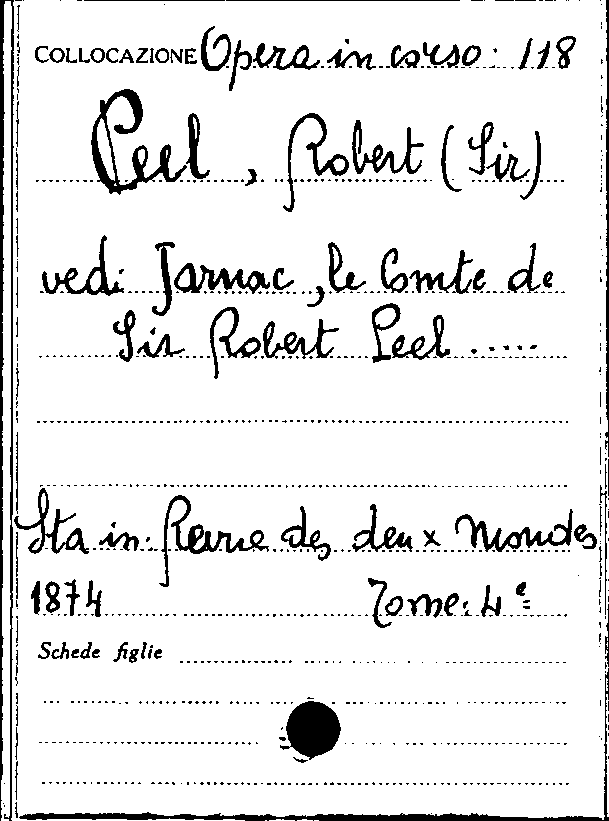 COLLOCAZIONE Opera in corso: 118
Peel, Robert (Sir)
vedi Jarnac, le Comte de
Sir Robert Peel .....
Sta in: Revue des deux Mondes
1874 Tome: 4e
Schede figlie